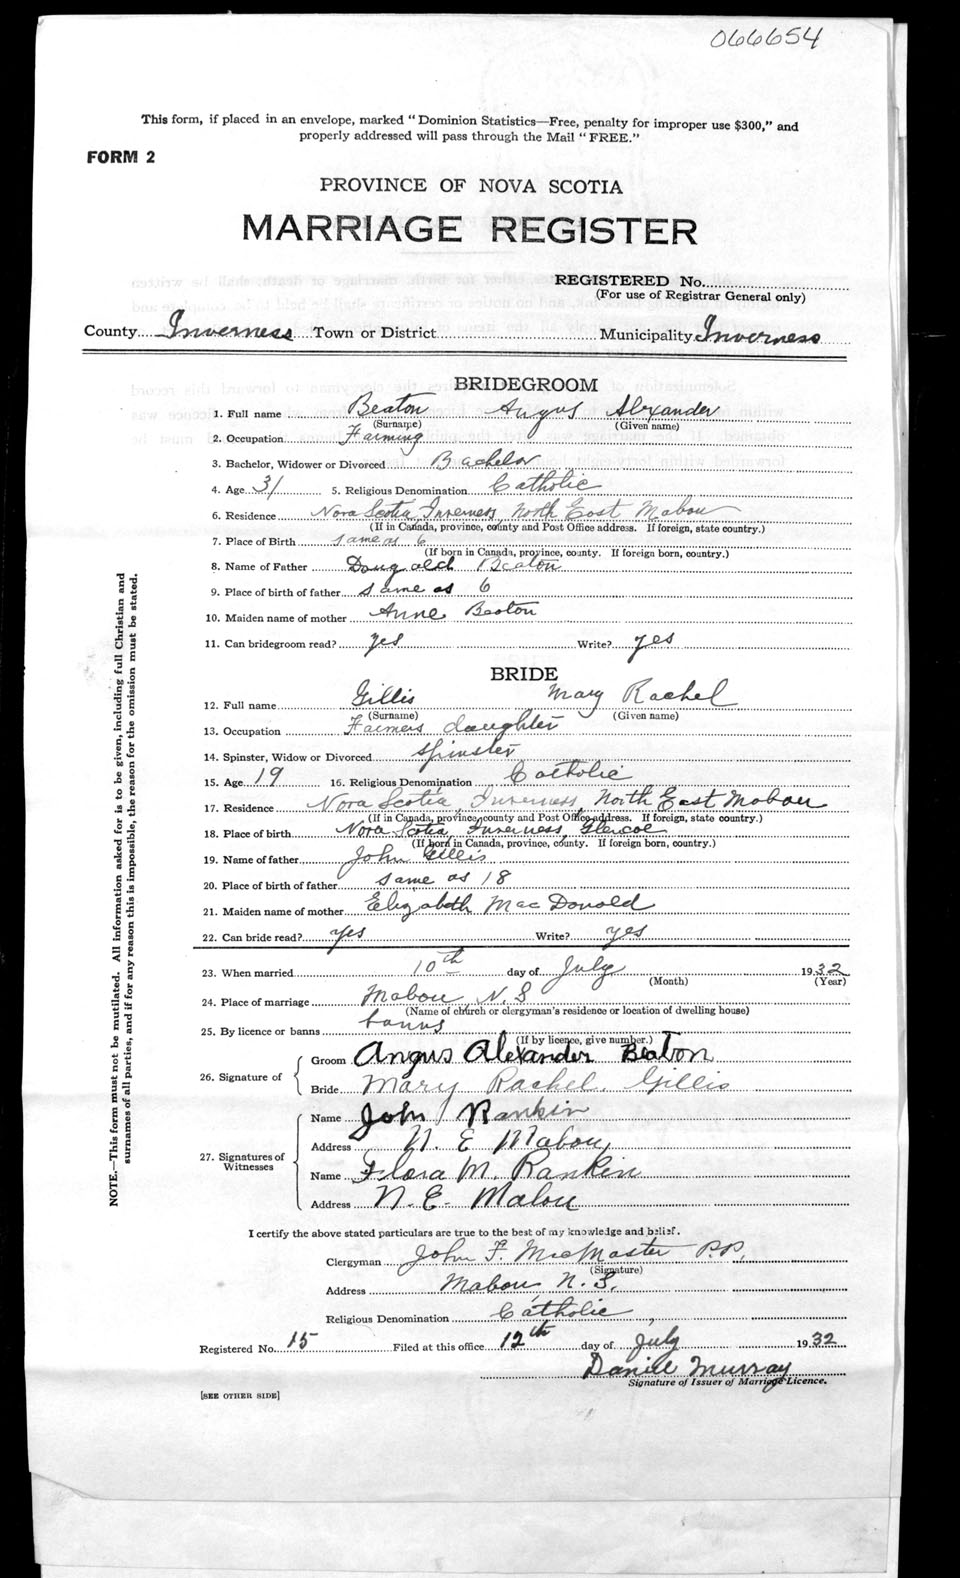 066654
This form, if placed in an envelope, marked "Dominion Statistics—Free, penalty for improper use $300," and
properly addressed will pass through the Mail "FREE."
FORM 2
PROVINCE OF NOVA SCOTIA
MARRIAGE REGISTER
REGISTERED No.
(For use of Registrar General only)
County Inverness Town or District Municipality Inverness
BRIDEGROOM
1. Full name Beaton Angus Alexander
(Surname) (Given name)
2. Occupation Farming
3. Bachelor, Widower or Divorced Bachelor
4. Age 31 5. Religious Denomination Catholic
6. Residence Nova Scotia, Inverness, North East Mabou
(If in Canada, province, county and Post Office address. If foreign, state country.)
7. Place of Birth same as 6
(If born in Canada, province, county. If foreign born, country.)
8. Name of Father Dougald Beaton
9. Place of birth of father same as 6
10. Maiden name of mother Anne Beaton
11. Can bridegroom read? yes Write? yes
BRIDE
12. Full name Gillis Mary Rachel
(Surname) (Given name)
13. Occupation Farmers daughter
14. Spinster, Widow or Divorced spinster
15. Age 19 16. Religious Denomination Catholic
17. Residence Nova Scotia, Inverness, North East Mabou
(If in Canada, province, county and Post Office address. If foreign, state country.)
18. Place of birth Nova Scotia, Inverness, Glencoe
(If born in Canada, province, county. If foreign born, country.)
19. Name of father John Gillis
20. Place of birth of father same as 18
21. Maiden name of mother Elizabeth MacDonald
22. Can bride read? yes Write? yes
23. When married 10th day of July 1932
(Month) (Year)
24. Place of marriage Mabou N.S
(Name of church or clergyman's residence or location of dwelling house)
25. By licence or banns banns
(If by licence, give number.)
26. Signature of Groom Angus Alexander Beaton
Bride Mary Rachel Gillis
27. Signatures of Witnesses Name John Rankin
Address N. E Mabou
Name Flora M. Rankin
Address N. E. Mabou
I certify the above stated particulars are true to the best of my knowledge and belief.
Clergyman John F. MacMaster P.P.
(Signature)
Address Mabou, N. S.
Religious Denomination Catholic
Registered No. 15 Filed at this office 12th day of July 1932
Daniel Murray
Signature of Issuer of Marriage Licence.
[SEE OTHER SIDE]
NOTE.—This form must not be mutilated. All information asked for is to be given, including full Christian and
surnames of all parties, and if for any reason this is impossible, the reason for the omission must be stated.